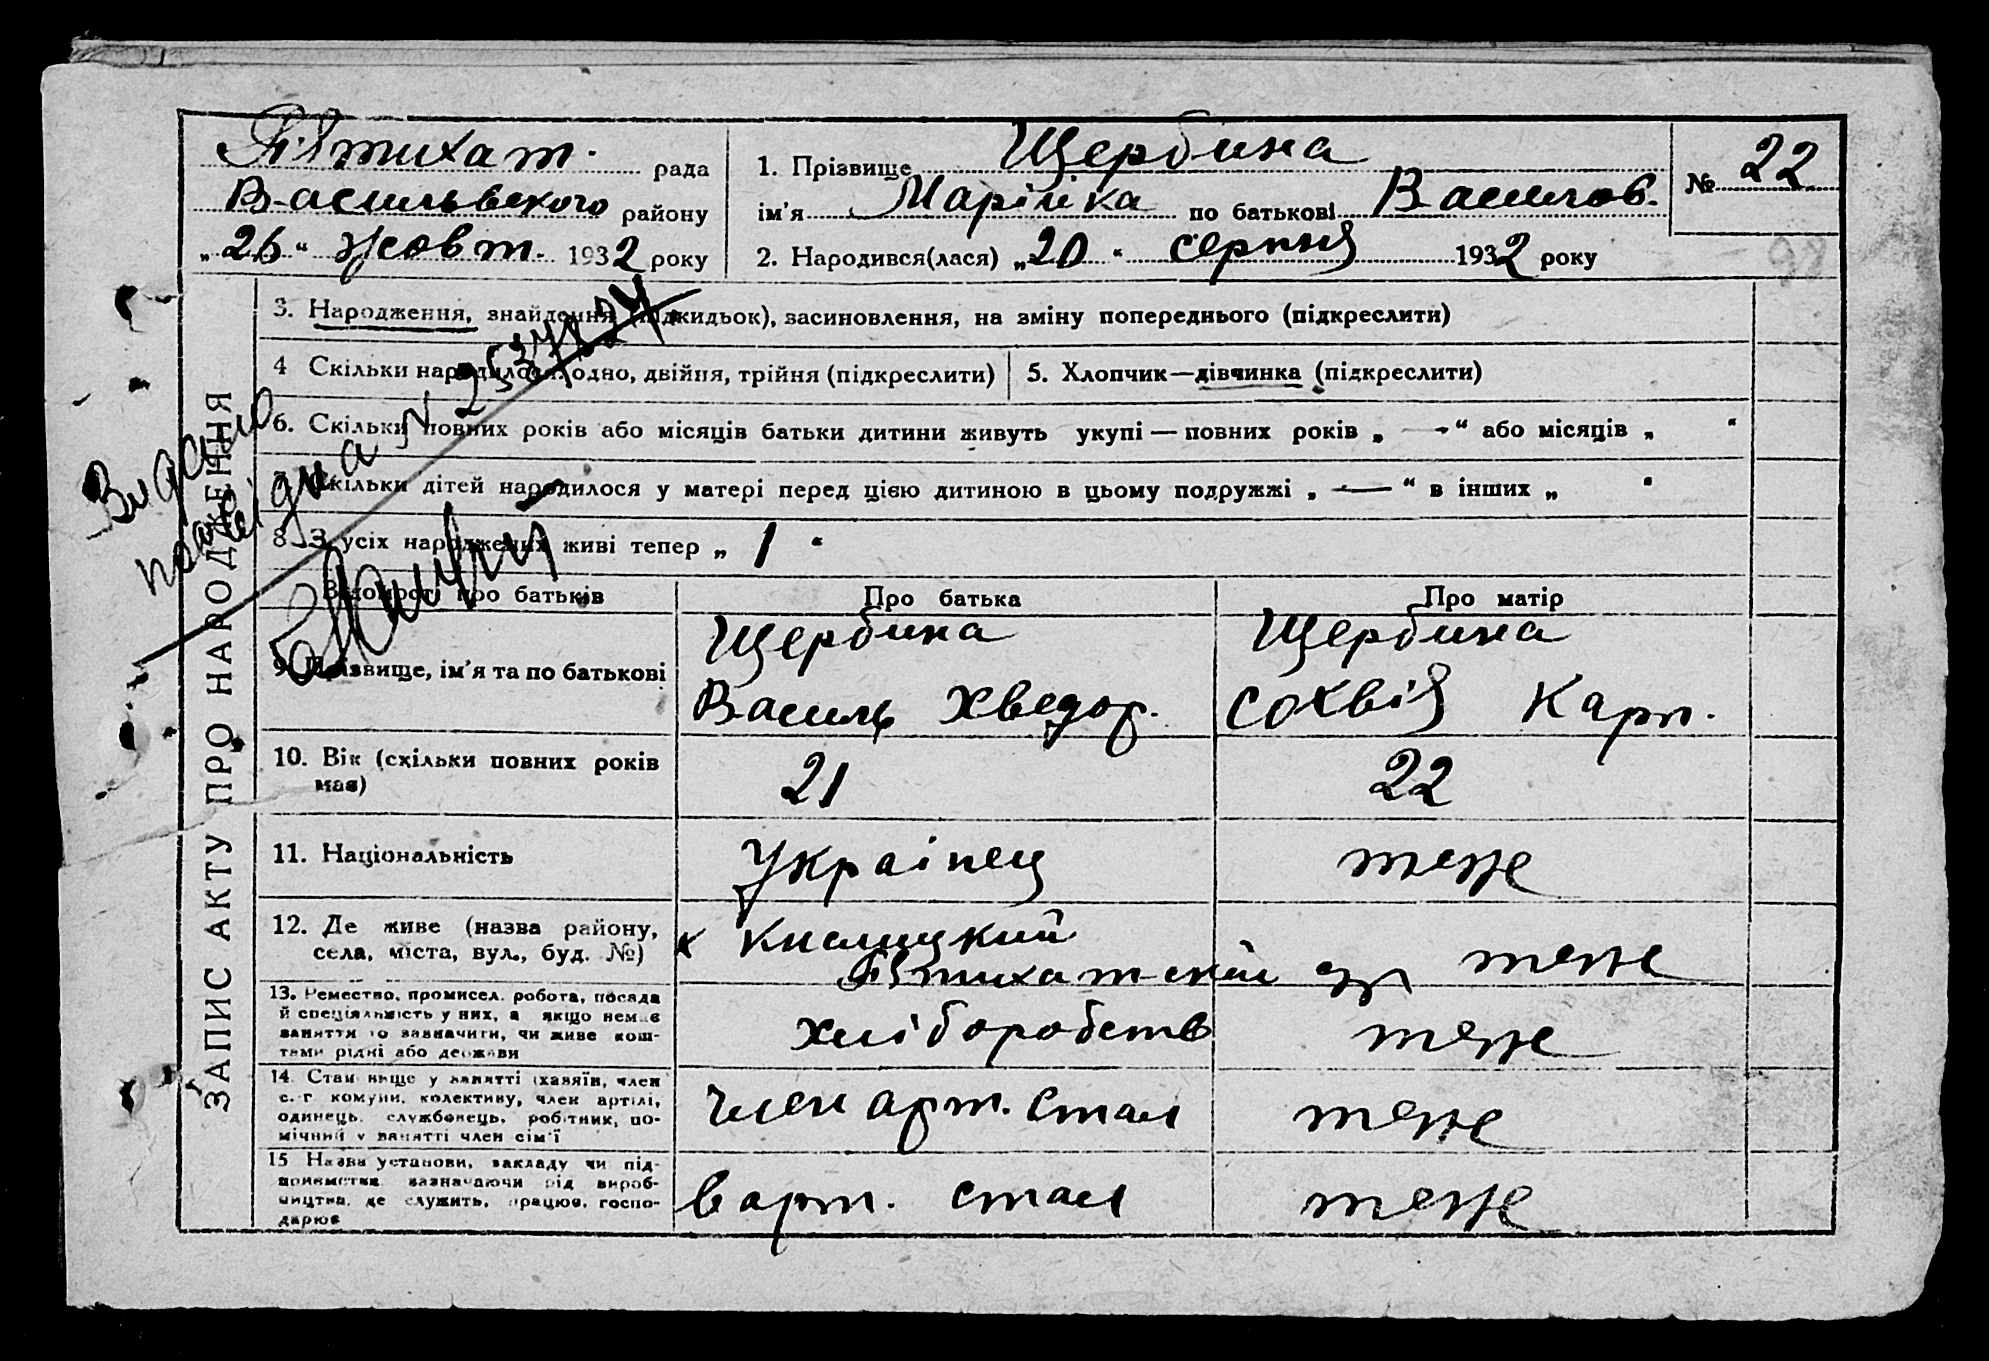 Пʼятихат. рада
Васильвского району
„26“ жовт. 1932 року
1. Прізвище Щербина
ім'я Марійка по батькові Васигов.
2. Народився(лася) „20“ серпня 1932 року
№ 22
ЗАПИС АКТУ ПРО НАРОДЖЕННЯ
3. Народження, знайдення (підкидьок), засиновлення, на зміну попереднього (підкреслити)
4 Скільки народилося: одно, двійня, трійня (підкреслити)
5. Хлопчик—дівчинка (підкреслити)
6. Скільки повних років або місяців батьки дитини живуть укупі — повних років „ — “ або місяців „ “
7. Скільки дітей народилося у матері перед цією дитиною в цьому подружжі „ — “ в інших „ “
8. З усіх народжених живі тепер „ 1 “
Видано
Відомості про батьків
Про батька
Про матір
9. Прізвище, ім'я та по батькові
Щербина
Василь Хведор.
Щербина
Сохвія Карп.
10. Вік (скільки повних років
має)
21
22
11. Національність
Украінец
теже
12. Де живе (назва району,
села, міста, вул., буд. №)
х
теже
13. Ремество, промисел, робота, посада
й спеціяльність у них, а якщо немає
заняття то зазначити, чи живе кош-
тами рідні або держави
хліборобств
теже
14. Стан вище у занятті (хазяїн, член
с.-г. комуни, колективу, член артілі,
одинець, службовець, робітник, по-
мічний у занятті член сім'ї
член арт. Стал
теже
15 Назва установи, закладу чи під-
приємства зазначаючи рід вироб-
ництва, де служить, працює, госпо-
дарює
в арт. стал
теже